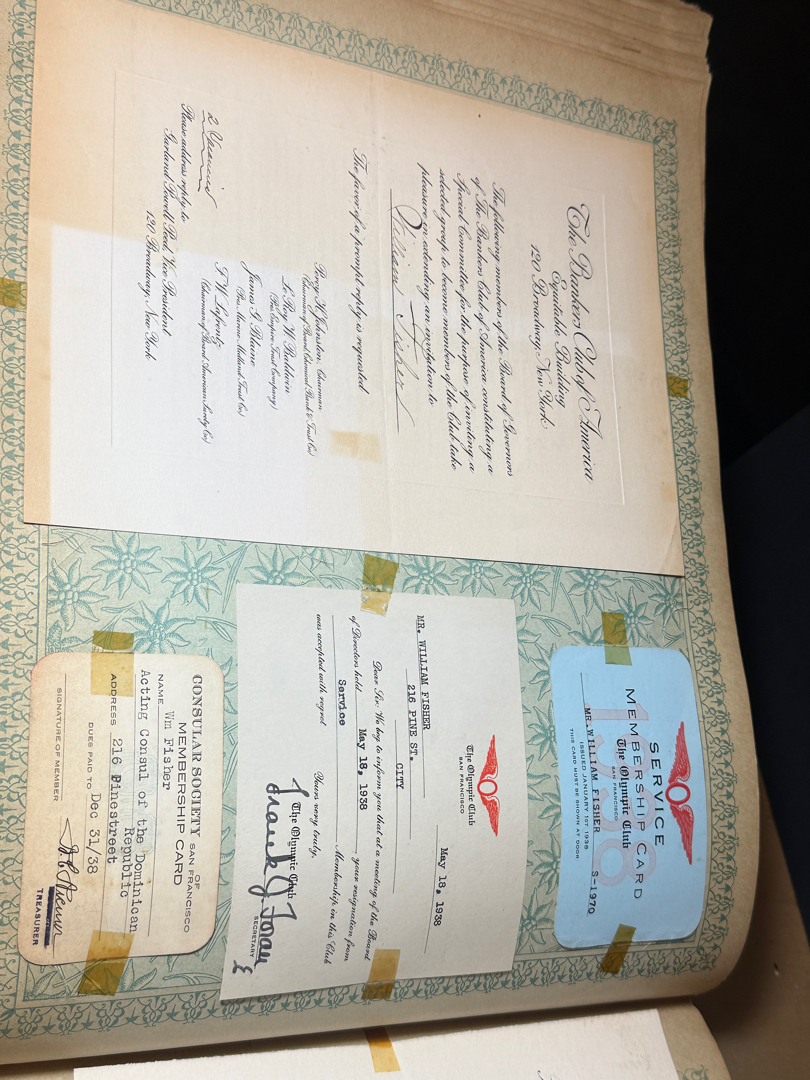 The Bankers Club of America
Equitable Building
120 Broadway, New York
The following members of the Board of Governors
of The Bankers Club of America constituting a
Special Committee for the purpose of inviting a
selected group to become members of the Club take
pleasure in extending an invitation to
William Fisher
The favor of a prompt reply is requested
Percy H. Johnston, Chairman
(Chairman of Board, Chemical Bank & Trust Co.)
Le Roy W. Baldwin
(Pres. Empire Trust Company)
James G. Blaine
(Pres. Marine Midland Trust Co.)
F. W. Lafrentz
(Chairman of Board American Surety Co.)
Please address reply to
Garland Powell Peed, Vice President
120 Broadway, New York
SERVICE
MEMBERSHIP CARD
1938
The Olympic Club
SAN FRANCISCO
MR. WILLIAM FISHER S-1970
ISSUED JANUARY 1ST 1938
THIS CARD MUST BE SHOWN AT DOOR
The Olympic Club
SAN FRANCISCO
May 18, 1938
MR. WILLIAM FISHER
216 PINE ST.
CITY
Dear Sir: We beg to inform you that at a meeting of the Board
of Directors held May 18, 1938 your resignation from
Service Membership in this Club
was accepted with regret.
Yours very truly,
The Olympic Club
Frank J. Foran
SECRETARY
CONSULAR SOCIETY OF SAN FRANCISCO
MEMBERSHIP CARD
NAME Wm Fisher
Acting Consul of the Dominican
Republic
ADDRESS 216 Pinestreet
DUES PAID TO Dec 31/38
SIGNATURE OF MEMBER
TREASURER